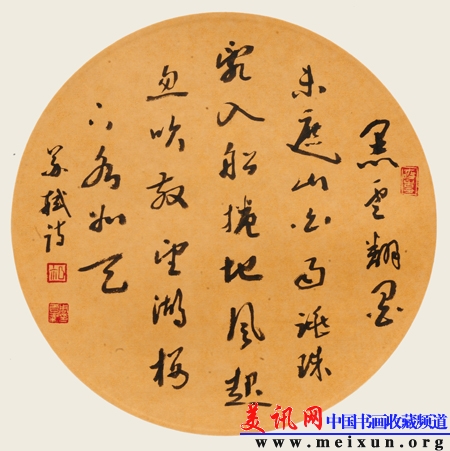 黑雲翻墨
未遮山白雨跳珠
亂入船捲地風起
忽吹散望湖樓
下水如天
蘇軾詩
美讯网 中国书画收藏频道
www.meixun.org